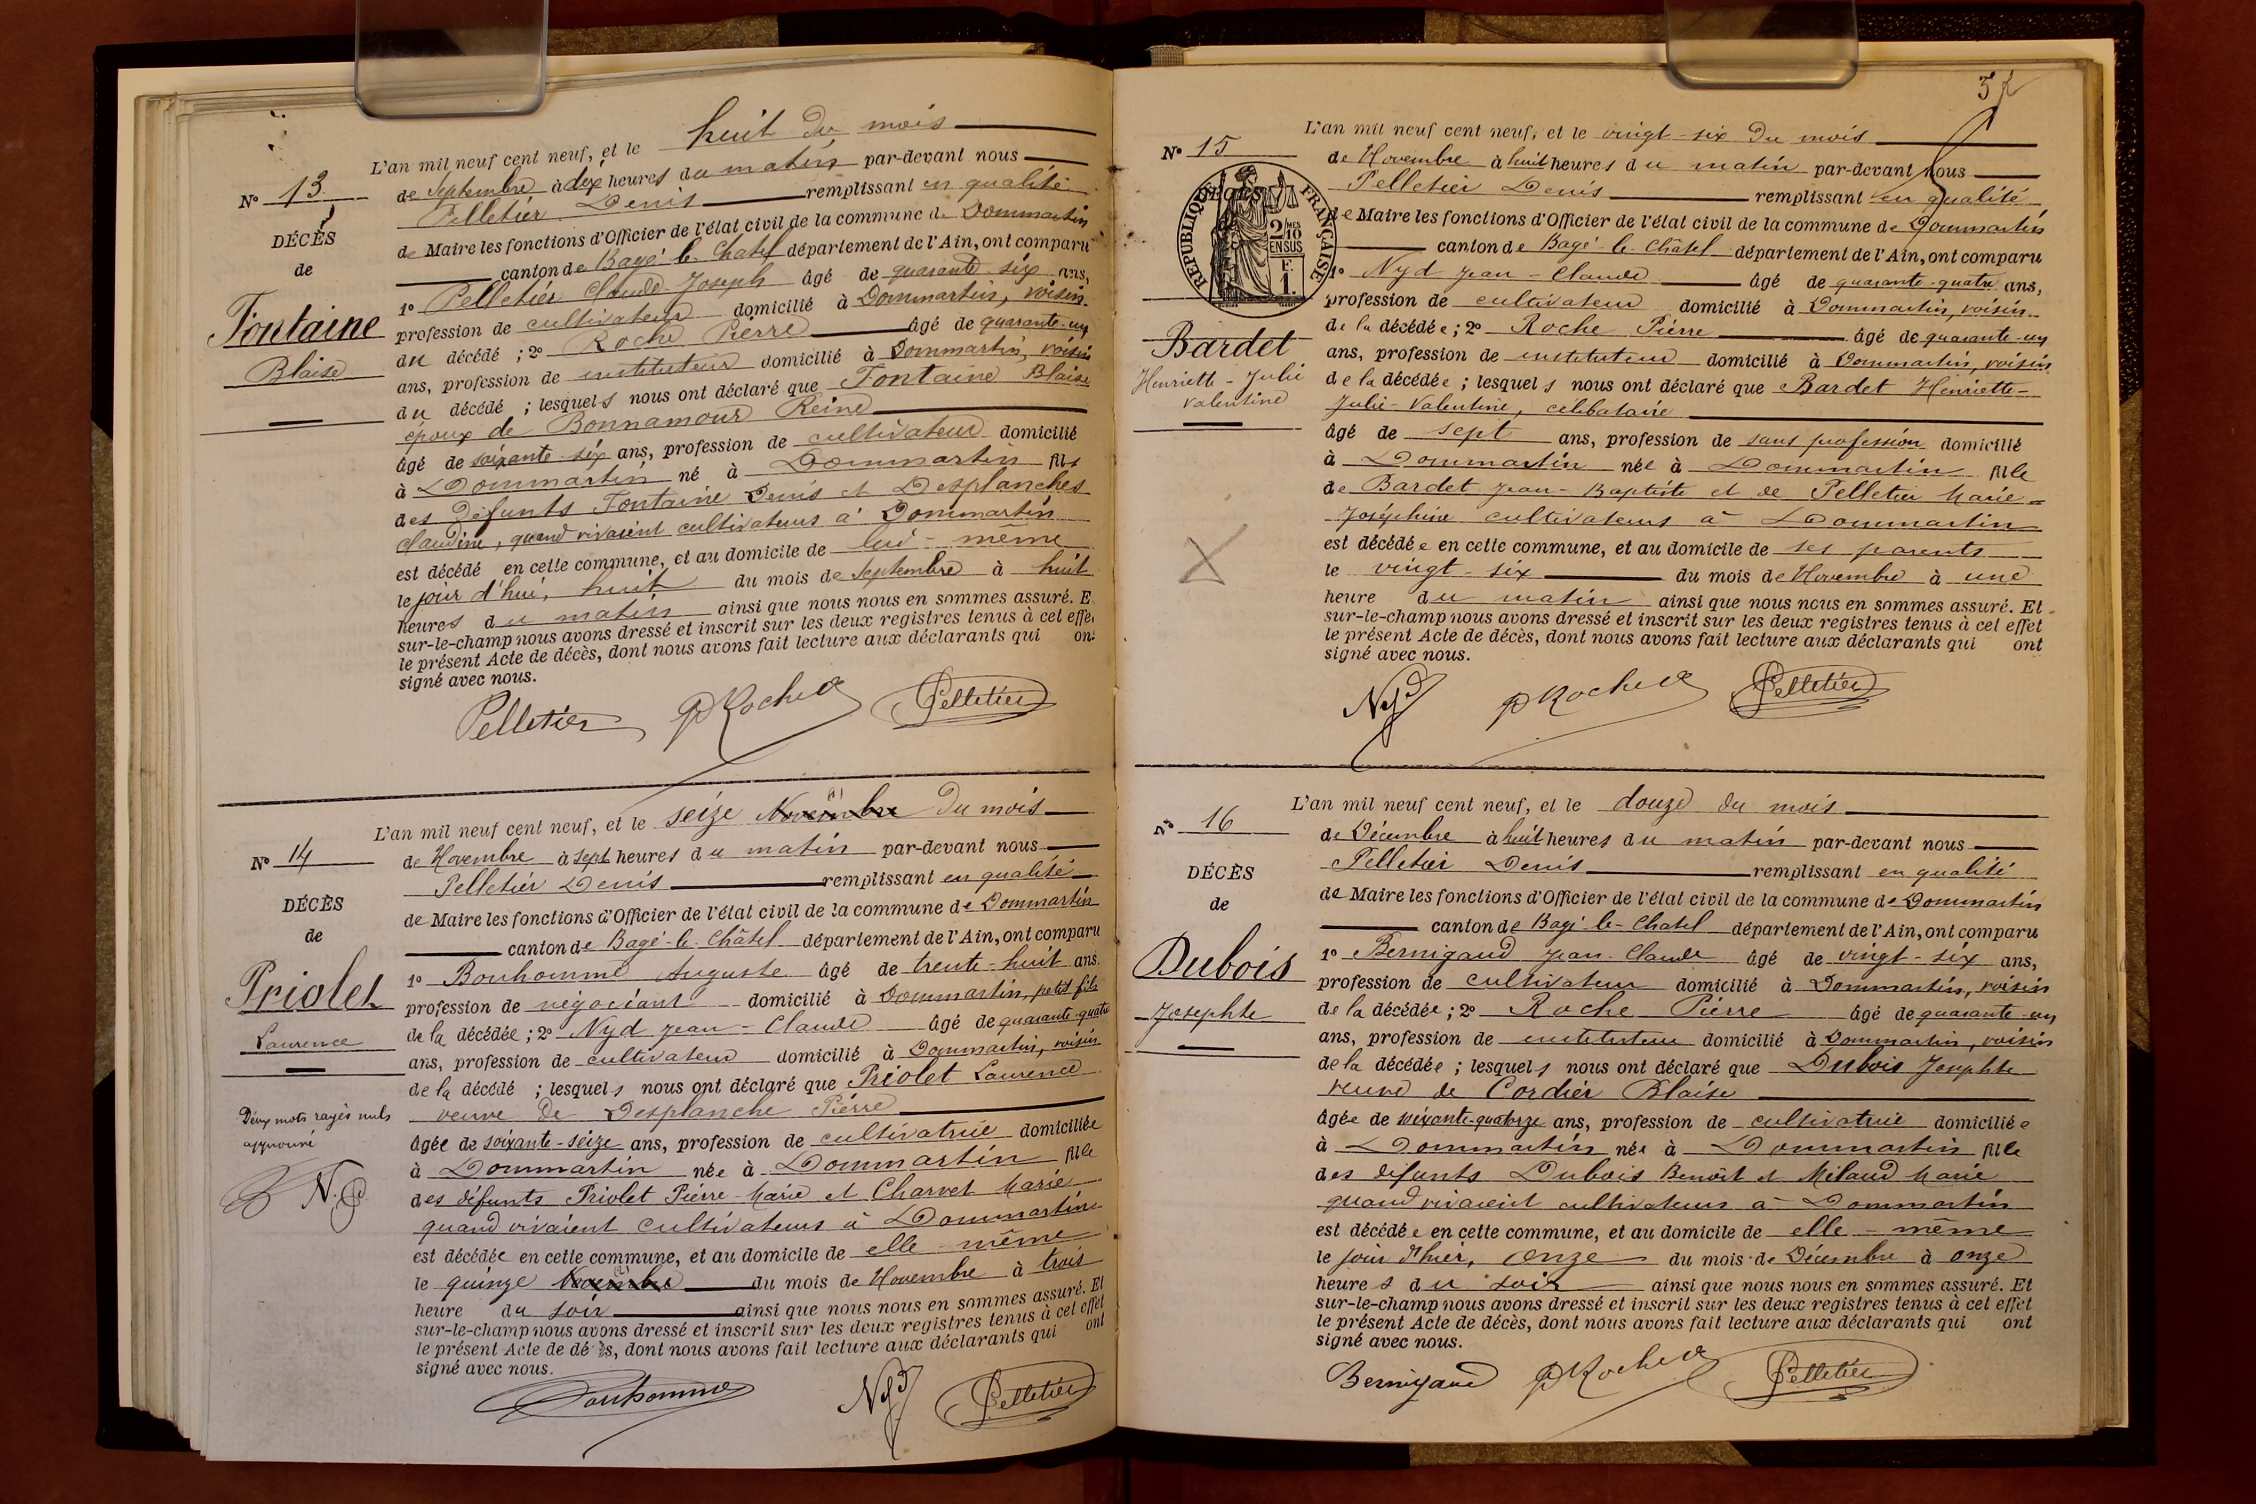 N° 13
DÉCÈS
de
Fontaine
Blaise
L'an mil neuf cent neuf, et le huit du mois
de Septembre à dix heures du matin par-devant nous
Pelletier Denis remplissant en qualité
de Maire les fonctions d'Officier de l'état civil de la commune de Dommartin
canton de Bagé-le-Chatel département de l'Ain, ont comparu
1° Pelletier Claude Joseph âgé de quarante-six ans,
profession de cultivateur domicilié à Dommartin, voisin
du décédé ; 2° Roche Pierre âgé de quarante-un
ans, profession de instituteur domicilié à Dommartin, voisin
du décédé ; lesquels nous ont déclaré que Fontaine Blaise
époux de Bonnamour Reine
âgé de soixante-six ans, profession de cultivateur domicilié
à Dommartin né à Dommartin fils
des défunts Fontaine Denis et Desplanches
Claudine, quand vivaient cultivateurs à Dommartin
est décédé en cette commune, et au domicile de lui-même
le jour d'hui, huit du mois de Septembre à huit
heures du matin ainsi que nous nous en sommes assuré. E
sur-le-champ nous avons dressé et inscrit sur les deux registres tenus à cet effe
le présent Acte de décès, dont nous avons fait lecture aux déclarants qui ont
signé avec nous.
Pelletier PRoche Pelletier
N° 14
DÉCÈS
de
Priolet
Laurence
Deux mots rayés nuls
approuvé
N.J
L'an mil neuf cent neuf, et le seize Novembre du mois
de Novembre à sept heures du matin par-devant nous
Pelletier Denis remplissant en qualité
de Maire les fonctions d'Officier de l'état civil de la commune de Dommartin
canton de Bagé-le-Châtel département de l'Ain, ont comparu
1° Bonhomme Auguste âgé de trente-huit ans
profession de négociant domicilié à Dommartin, petit fils
de la décédée ; 2° Nyd Jean-Claude âgé de quarante-quatre
ans, profession de cultivateur domicilié à Dommartin, voisin
de la décédé ; lesquels nous ont déclaré que Priolet Laurence
veuve de Desplanche Pierre
âgée de soixante-seize ans, profession de cultivatrice domiciliée
à Dommartin née à Dommartin fille
des défunts Priolet Pierre-Marie et Charvet Marie
quand vivaient cultivateurs à Dommartin
est décédée en cette commune, et au domicile de elle-même
le quinze Novembre du mois de Novembre à trois
heure du soir ainsi que nous nous en sommes assuré. Et
sur-le-champ nous avons dressé et inscrit sur les deux registres tenus à cet effet
le présent Acte de décès, dont nous avons fait lecture aux déclarants qui ont
signé avec nous.
Bonhomme Nyd Pelletier
N° 15
RÉPUBLIQUE FRANÇAISE
2/10
EN SUS
F.
1.
Bardet
Henriette-Julie
Valentine
L'an mil neuf cent neuf, et le vingt-six du mois
de Novembre à huit heures du matin par-devant nous
Pelletier Denis remplissant en qualité
de Maire les fonctions d'Officier de l'état civil de la commune de Dommartin
canton de Bagé-le-Châtel département de l'Ain, ont comparu
1° Nyd Jean-Claude âgé de quarante-quatre ans,
profession de cultivateur domicilié à Dommartin, voisin
de la décédée ; 2° Roche Pierre âgé de quarante-un
ans, profession de instituteur domicilié à Dommartin, voisin
de la décédée ; lesquels nous ont déclaré que Bardet Henriette-
Julie-Valentine, célibataire
âgé de sept ans, profession de sans profession domicilié
à Dommartin née à Dommartin fille
de Bardet Jean-Baptiste et de Pelletier Marie-
Joséphine cultivateurs à Dommartin
est décédée en cette commune, et au domicile de ses parents
le vingt-six du mois de Novembre à une
heure du matin ainsi que nous nous en sommes assuré. Et
sur-le-champ nous avons dressé et inscrit sur les deux registres tenus à cet effet
le présent Acte de décès, dont nous avons fait lecture aux déclarants qui ont
signé avec nous.
Nyd PRoche Pelletier
N° 16
DÉCÈS
de
Dubois
Josephte
L'an mil neuf cent neuf, et le douze du mois
de Décembre à huit heures du matin par-devant nous
Pelletier Denis remplissant en qualité
de Maire les fonctions d'Officier de l'état civil de la commune de Dommartin
canton de Bagé-le-Chatel département de l'Ain, ont comparu
1° Bernigaud Jean-Claude âgé de vingt-six ans,
profession de cultivateur domicilié à Dommartin, voisin
de la décédée ; 2° Roche Pierre âgé de quarante-un
ans, profession de instituteur domicilié à Dommartin, voisin
de la décédée ; lesquels nous ont déclaré que Dubois Josephte
veuve de Cordier Blaise
âgée de soixante-quatorze ans, profession de cultivatrice domiciliée
à Dommartin née à Dommartin fille
des défunts Dubois Benoît et Milaud Marie
quand vivaient cultivateurs à Dommartin
est décédée en cette commune, et au domicile de elle-même
le jour d'hier, onze du mois de Décembre à onze
heures du soir ainsi que nous nous en sommes assuré. Et
sur-le-champ nous avons dressé et inscrit sur les deux registres tenus à cet effet
le présent Acte de décès, dont nous avons fait lecture aux déclarants qui ont
signé avec nous.
Bernigaud PRoche Pelletier